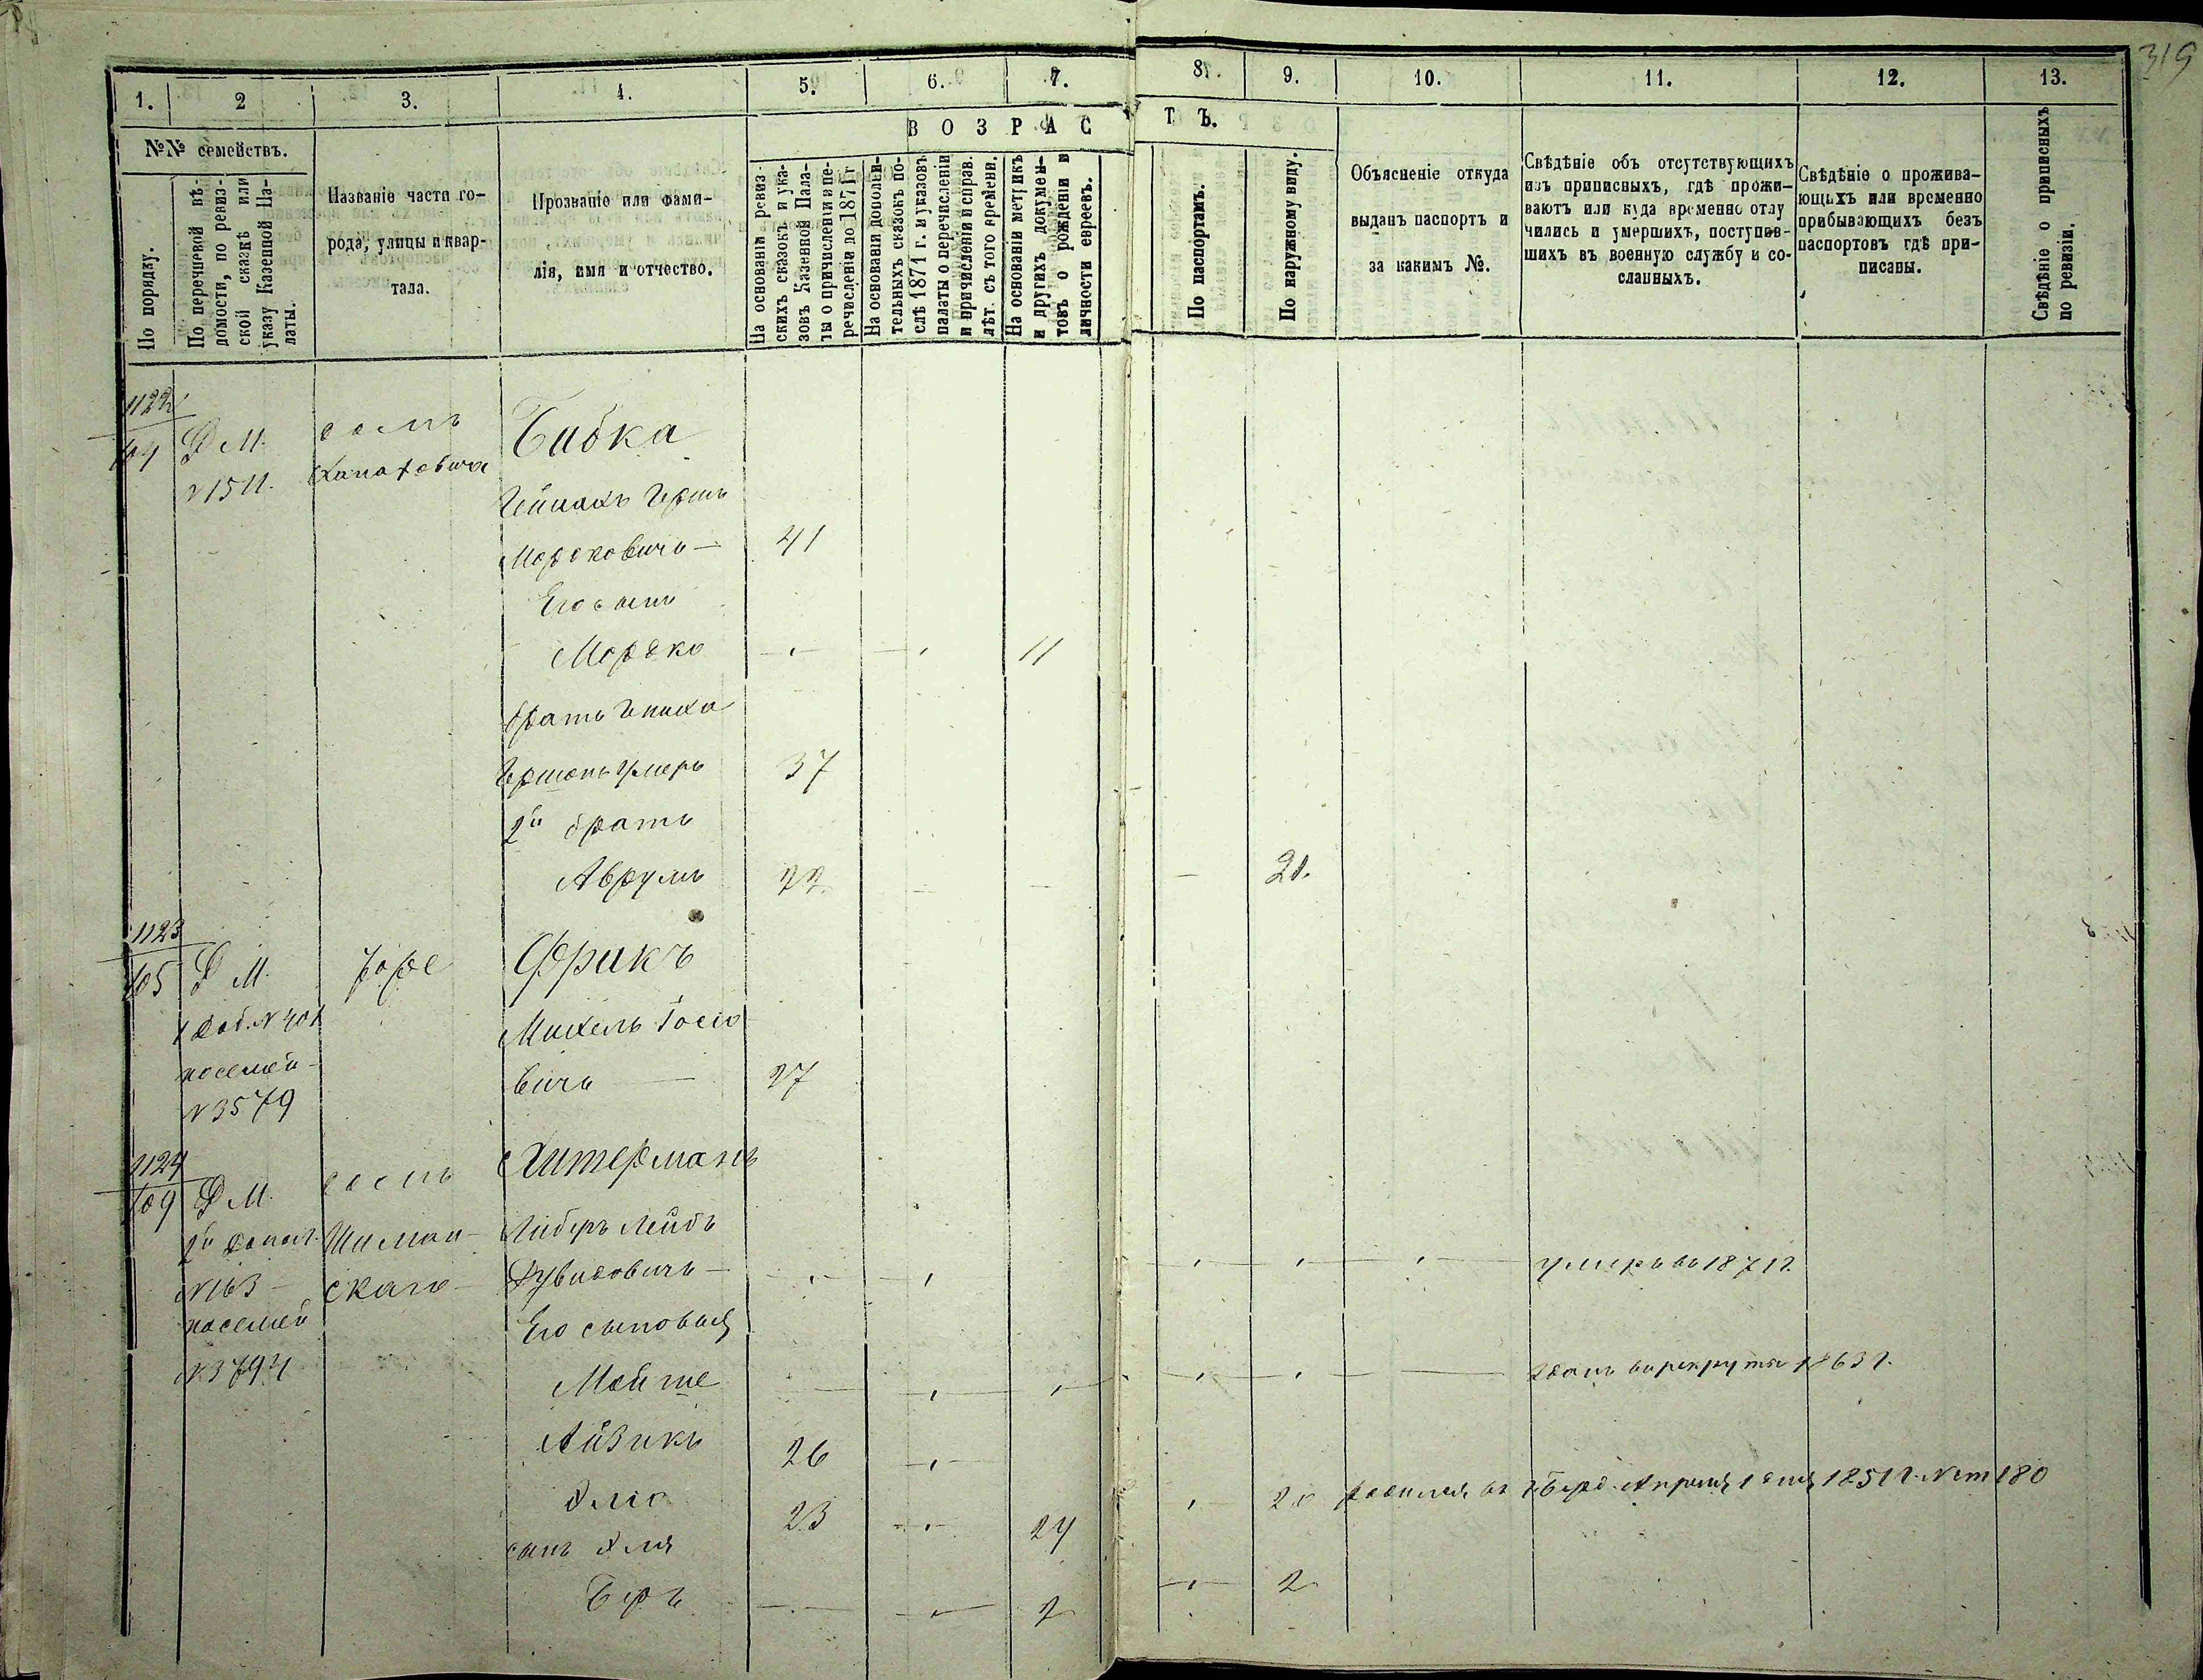 319
1. 2 3. 4. 5. 6. 7. 8. 9. 10. 11. 12. 13.
№№ семействъ.
По порядку.
По перечневой вѣ-
домости, по ревиз-
ской сказкѣ или
указу Казенной Па-
латы.
Названіе части го-
рода, улицы и квар-
тала.
Прозваніе или фами-
лія, имя и отчество.
ВОЗРАСТЪ.
На основаніи ревиз-
скихъ сказокъ и ука-
зовъ Казенной Пала-
ты о причисленіи и пе-
речисленіи по 1871 г.
На основаніи дополни-
тельныхъ сказокъ по-
слѣ 1871 г. и указовъ
палаты о перечисленіи
и причисленіи и справ.
лѣт. съ того времени.
На основаніи метрикъ
и другихъ докумен-
товъ о рожденіи и
личности евреевъ.
По паспортамъ.
По наружному виду.
Объясненіе откуда
выданъ паспортъ и
за какимъ №.
Свѣдѣніе объ отсутствующихъ
изъ приписныхъ, гдѣ прожи-
ваютъ или куда временно отлу
чились и умершихъ, поступив-
шихъ въ военную службу и со-
сланныхъ.
Свѣдѣніе о прожива-
ющихъ или временно
прибывающихъ безъ
паспортовъ гдѣ при-
писаны.
Свѣдѣніе о приписныхъ
по ревизіи.
1122
104 Д М. домъ Бабка
№ 1511.
Гершъ
Мордковичъ — 41
Его сынъ
Мордко 11
братъ
Гершонъ умеръ 37
2й братъ
Аврумъ 22 21.
1123
105 Д М. Фрикъ
1 доб. № 401 Михель Іосіо
посемей-
№ 3579 вичъ 27
1124
109 Д М. домъ Хитерманъ
2й допол. Шиман- Либеръ Лейбъ
№ 163 скаго Дувидовичъ — умеръ въ 1871 г.
посемей Его сыновья
№ 3794 Мойше зданъ въ рекруты 1863 г.
Айзикъ 26
Эліо 23 24 20 родился въ г. Берд. Апрѣля 1 дня 1851 г. № 180
сынъ Эля
Беръ 2 2